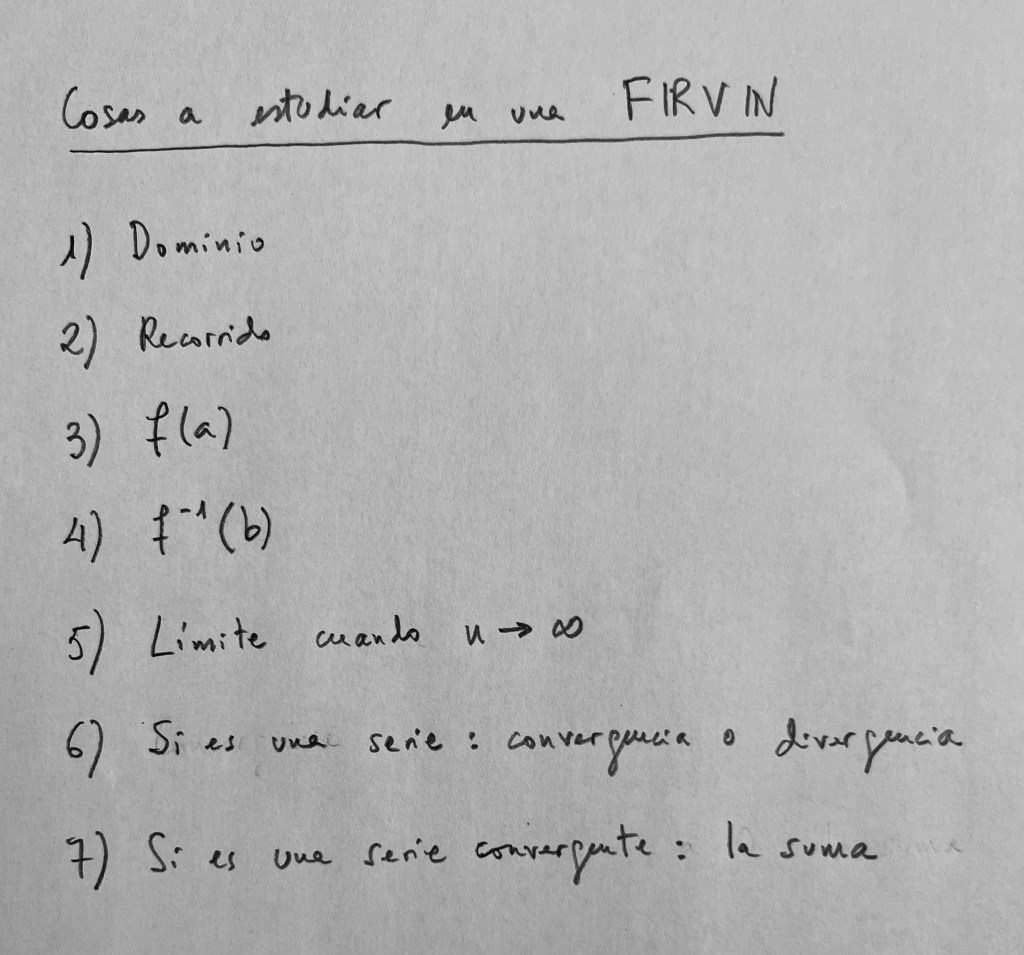 Cosas a estudiar en una FIRVIN
1) Dominio
2) Recorrido
3) f(a)
4) f⁻¹(b)
5) Límite cuando n → ∞
6) Si es una serie : convergencia o divergencia
7) Si es una serie convergente : la suma